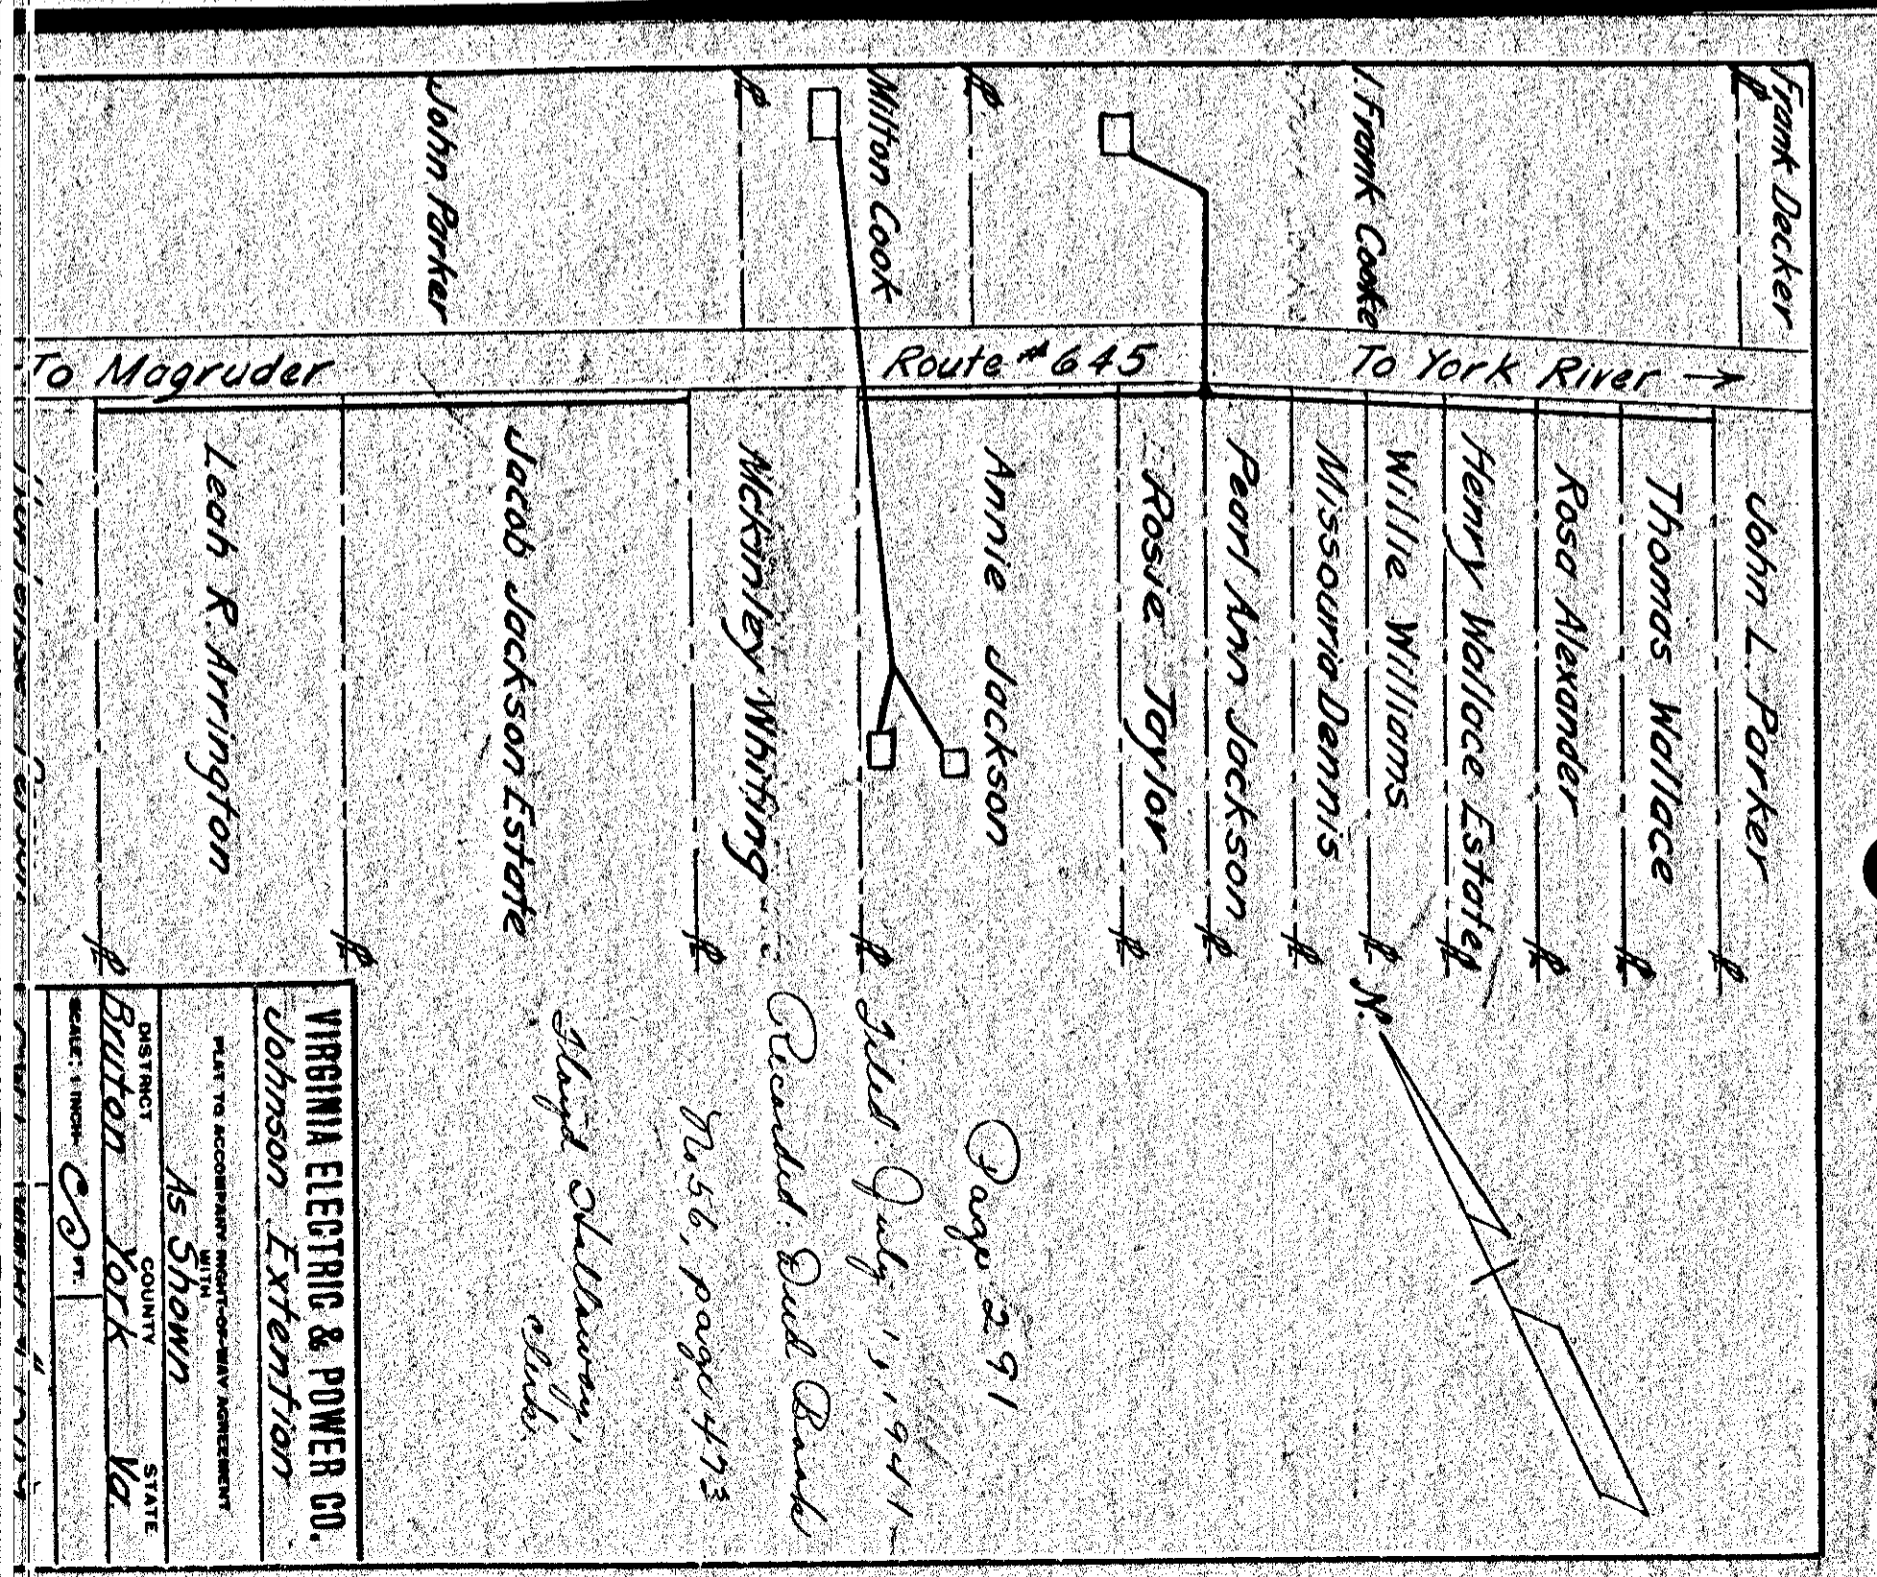 Frank Decker
J. Frank Cooke
Milton Cook
John Parker
To Magruder
Route #645
To York River →
John L. Parker
Thomas Wallace
Rosa Alexander
Henry Wallace Estate
Willie Williams
Missouria Dennis
Pearl Ann Jackson
Rosie Taylor
Annie Jackson
Mckinley Whiting
Jacob Jackson Estate
Leah R. Arrington
N.
Page 291
Filed: July 1, 1941
Recorded: Deed Book
No 56, page 473
Floyd Hallaway,
clerk.
VIRGINIA ELECTRIC & POWER CO.
Johnson Extention
PLAT TO ACCOMPANY RIGHT-OF-WAY AGREEMENT
WITH
As Shown
DISTRICT COUNTY STATE
Bruton York Va.
SCALE: 1 INCH= FT.